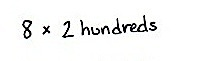 8 × 2 hundreds